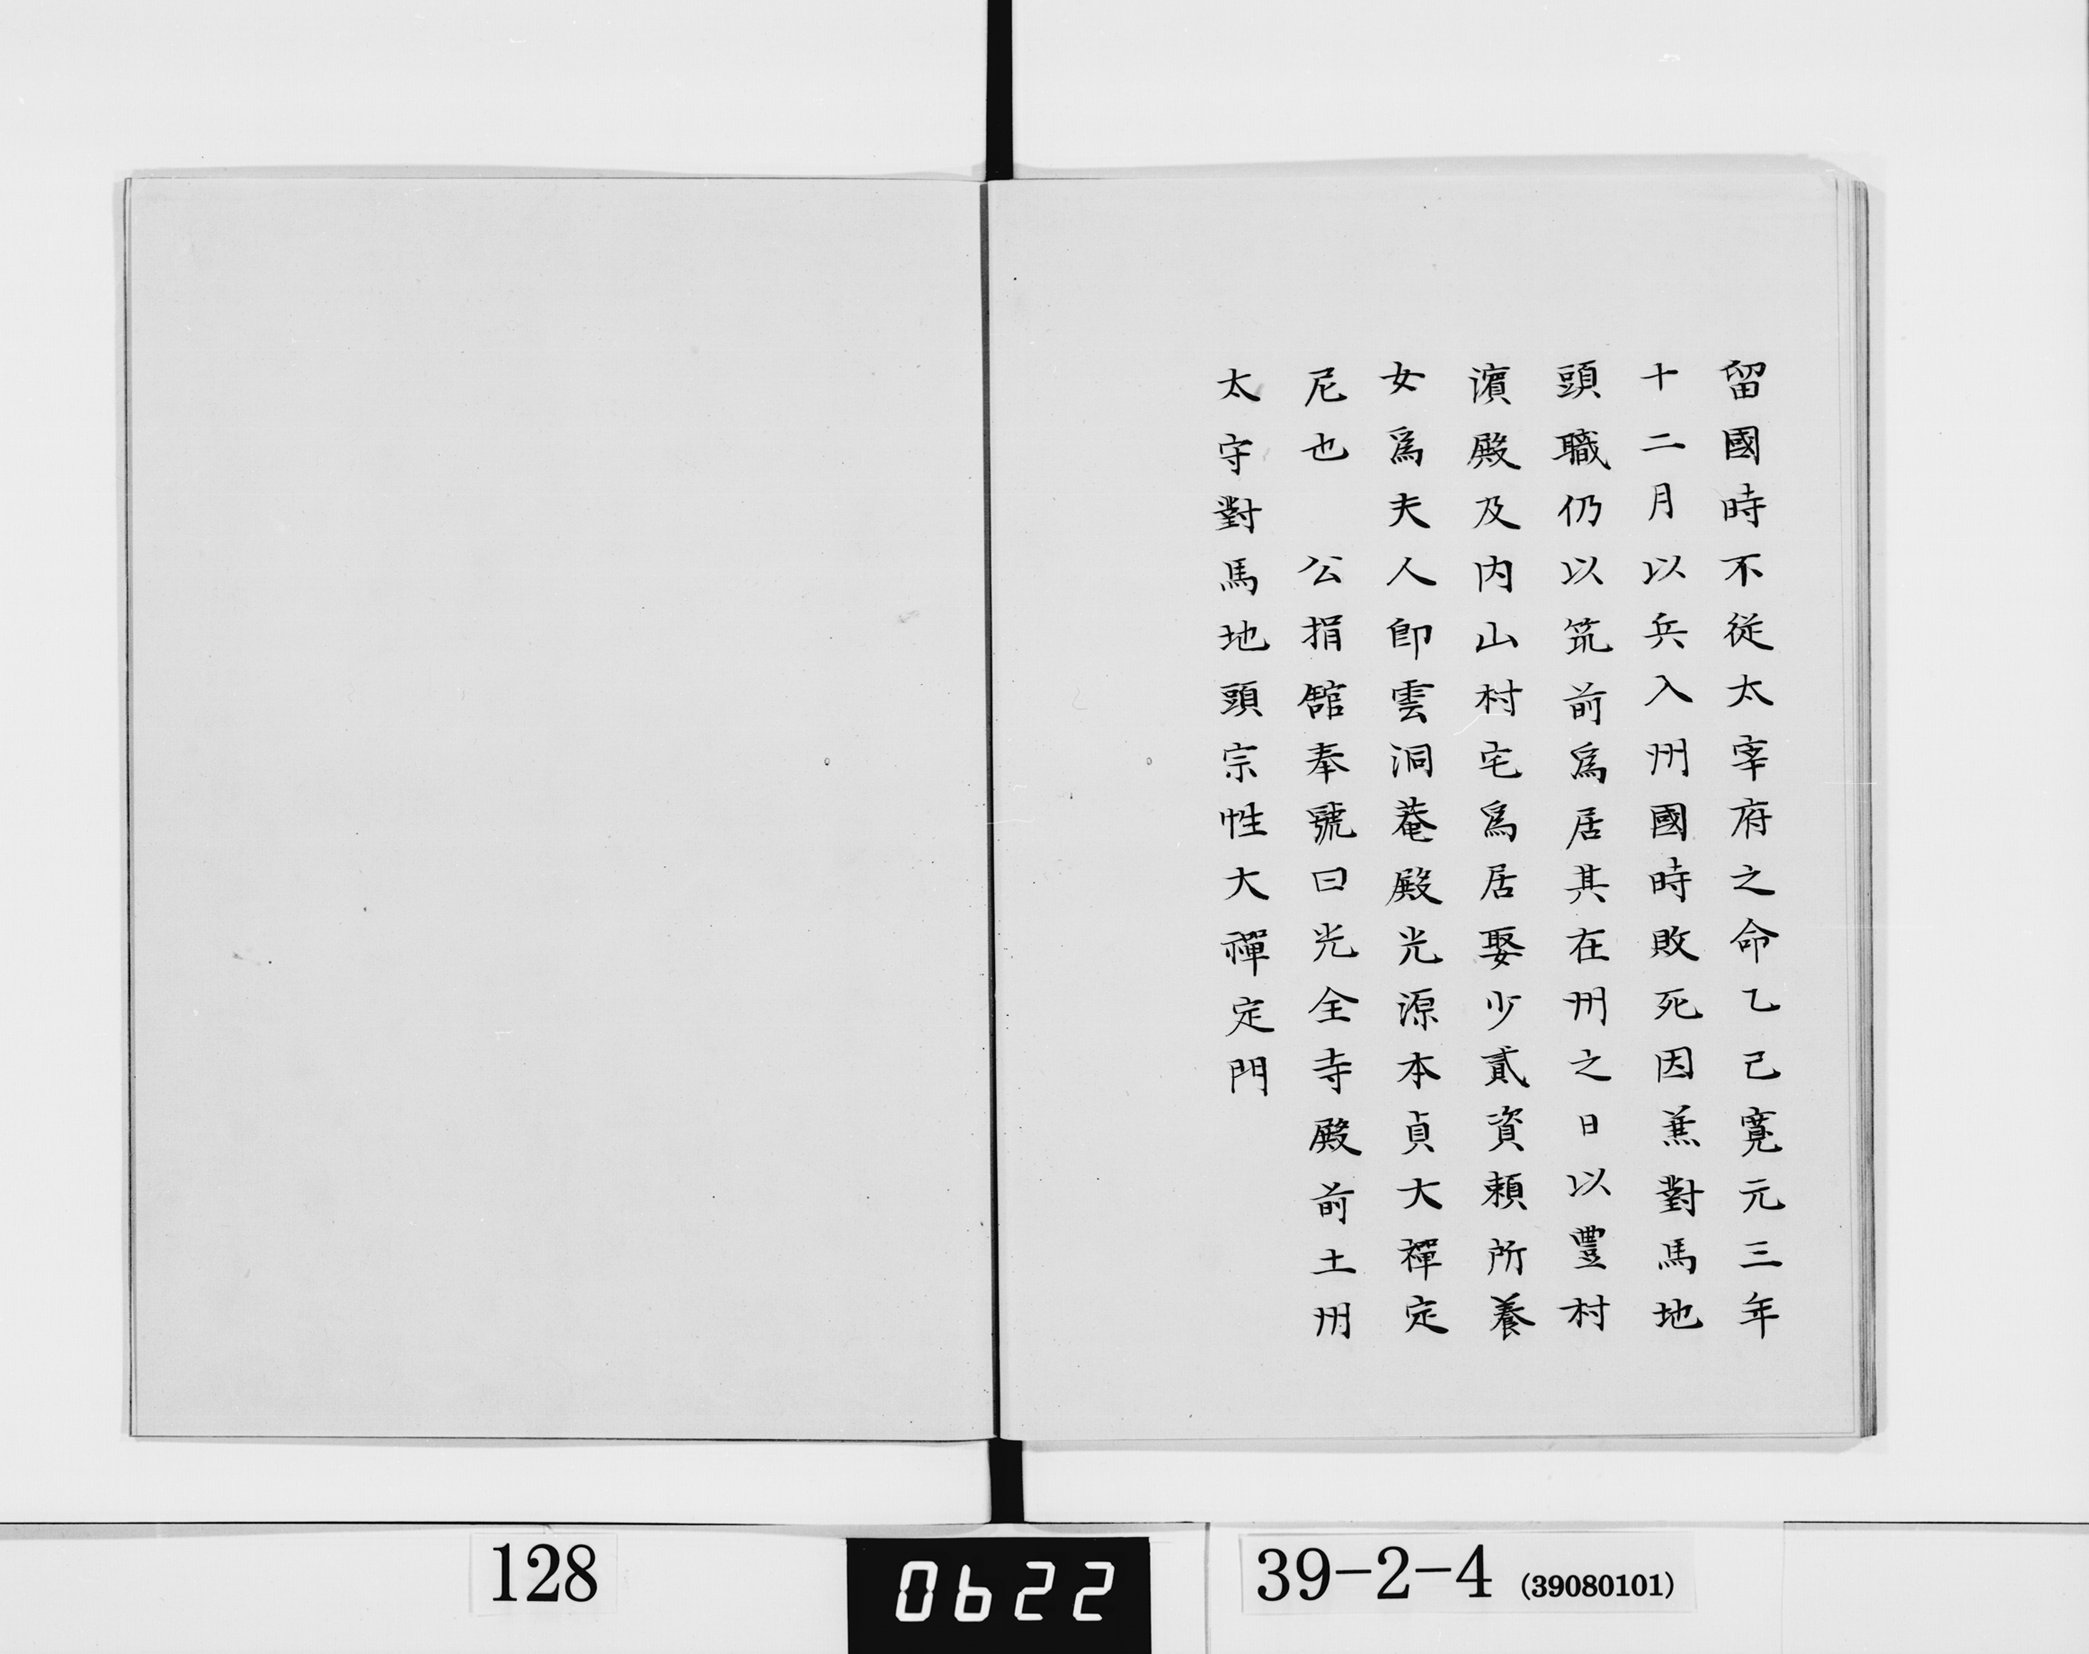 留國時不從太宰府之命乙己寬元三年
十二月以兵入州國時敗死因蕪對馬地
頭職仍以筑前爲居其在州之日以豐村
濵殿及内山村宅爲居娶少貳資頼所養
女爲夫人卽雲洞菴殿光源本貞大禪定
尼也　公捐舘奉號曰光全寺殿前土州
太守對馬地頭宗性大禪定門
128
0622
39-2-4 (39080101)